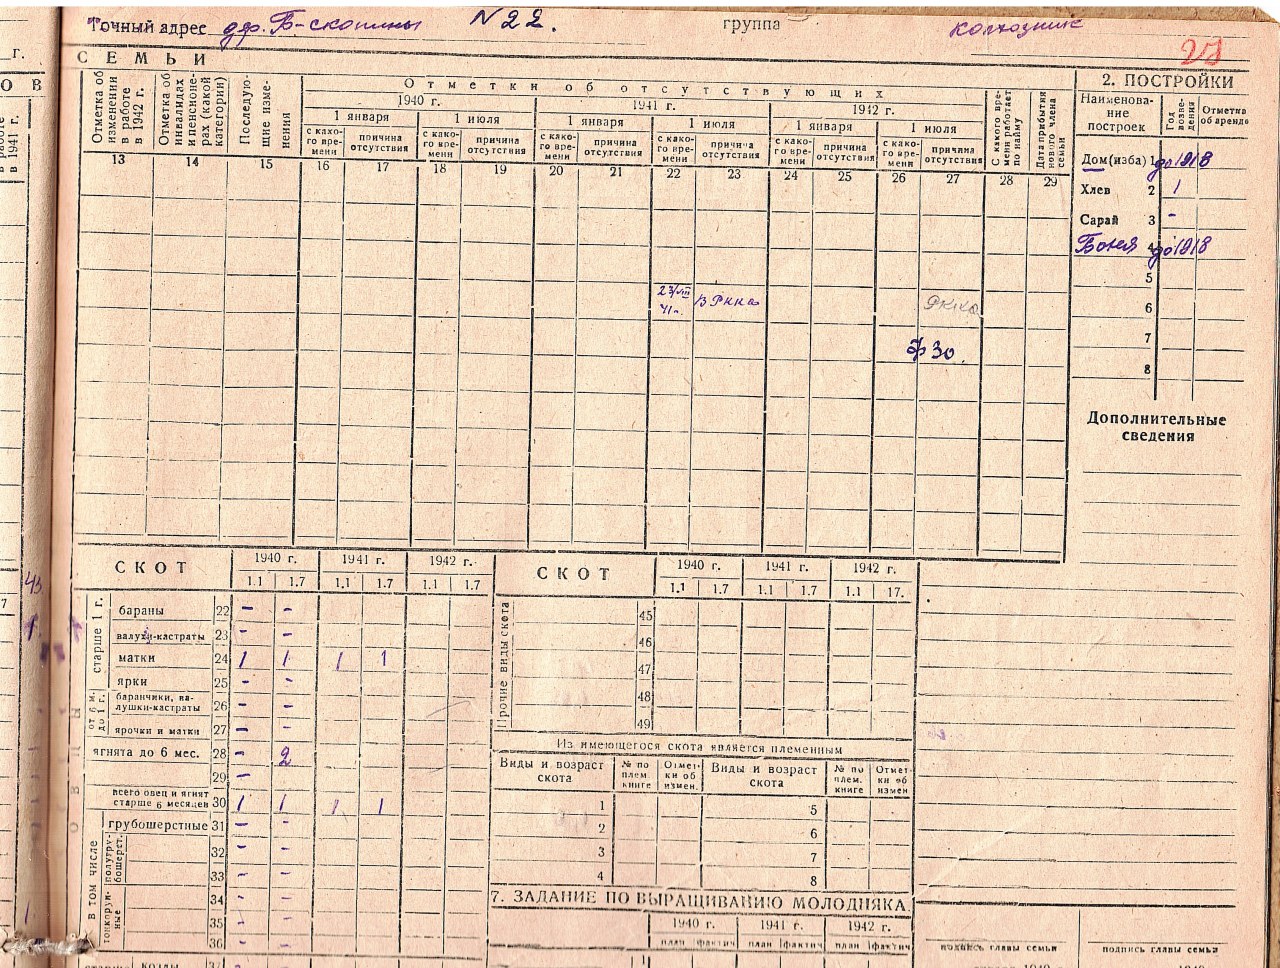 Точный адрес дер. Б-скотины N 22. группа колхозник
27
г.
О В
СЕМЬИ
Отметка об изменении в работе в 1942 г.
Отметка об инвалидах и пенсионерах (какой категории)
Последующие изменения
Отметки об отсутствующих
1940 г. 1941 г. 1942 г.
1 января 1 июля 1 января 1 июля 1 января 1 июля
с како-го вре-мени причина отсутствия с како-го вре-мени причина отсутствия с како-го вре-мени причина отсутствия с како-го вре-мени причина отсутствия с како-го вре-мени причина отсутствия с како-го вре-мени причина отсутствия
С какого вре-мени работает по найму
Дата прибытия нового члена семьи
13 14 15 16 17 18 19 20 21 22 23 24 25 26 27 28 29
23/VIII 41 г. в РККА РККА
30.
2. ПОСТРОЙКИ
Наименова-ние построек Год возве-дения Отметка об аренде
Дом (изба) 1 до 1918
Хлев 2 1
Сарай 3 -
Баня 4 до 1918
5
6
7
8
Дополнительные
сведения
СКОТ 1940 г. 1941 г. 1942 г.
1.1 1.7 1.1 1.7 1.1 1.7
старше 1 г.
бараны 22 - -
валухи-кастраты 23 - -
матки 24 1 1 1 1
ярки 25 - -
от 6 м. до 1 г.
баранчики, ва-
лушки-кастраты 26 - -
ярочки и матки 27 - -
ягнята до 6 мес. 28 - 2
29 -
всего овец и ягнят
старше 6 месяцев 30 1 1 1 1
в том числе
грубошерстные 31 - -
полугру-бошерст.
32 - -
33 - -
тонкорун-ные
34 - -
35 - -
36 - -
старше козлы 37 -
СКОТ 1940 г. 1941 г. 1942 г.
1.1 1.7 1.1 1.7 1.1 17.
Прочие виды скота
45
46
47
48
49
Из имеющегося скота является племенным
Виды и возраст скота № по плем. книге Отмет-ки об измен. Виды и возраст скота № по плем. книге Отмет-ки об измен
1 5
2 6
3 7
4 8
7. ЗАДАНИЕ ПО ВЫРАЩИВАНИЮ МОЛОДНЯКА
1940 г. 1941 г. 1942 г.
план фактич план фактич план фактич
подпись главы семьи подпись главы семьи